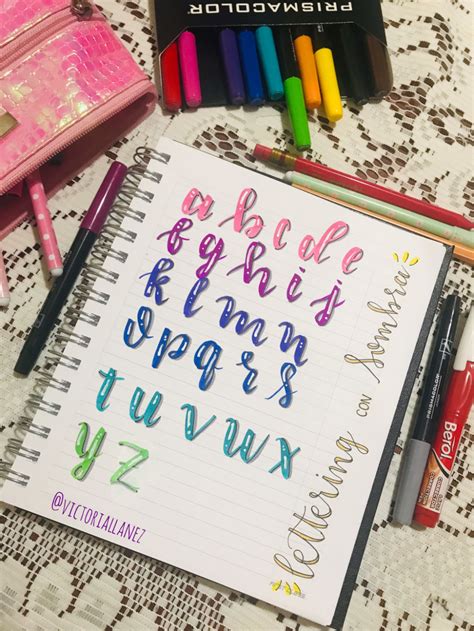 PRISMACOLOR
a b c d e
f g h i j
k l m n
o p q r s
t u v w x
y z
@VICTORIALLANEZ
lettering CON sombra
PRISMACOLOR
Berol